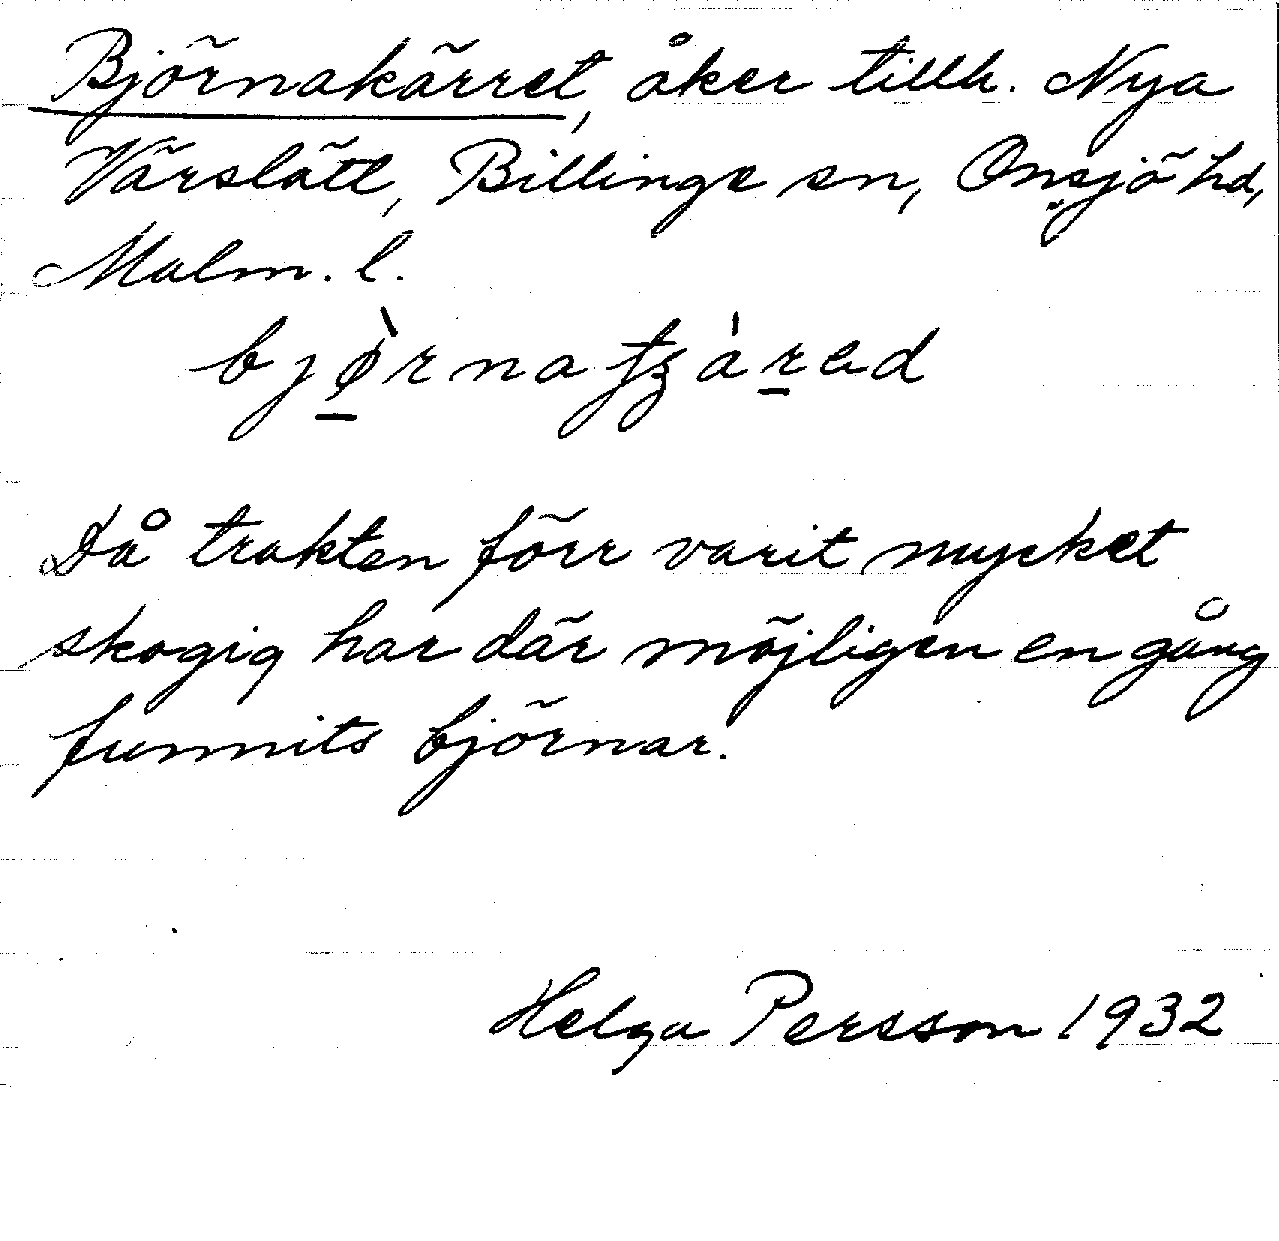 Björnakärret, åker tillh. Nya
Värslätt, Billinge sn, Onsjö hd,
Malm. l.
bjø̀rnatʒárad
Då trakten förr varit mycket
skogig har där möjligen en gång
funnits björnar.
Helga Persson 1932